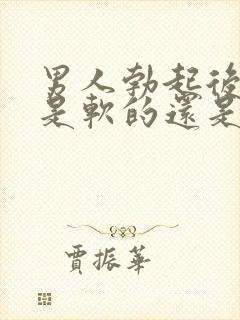 男人勃起後
是軟的還是
賈振華